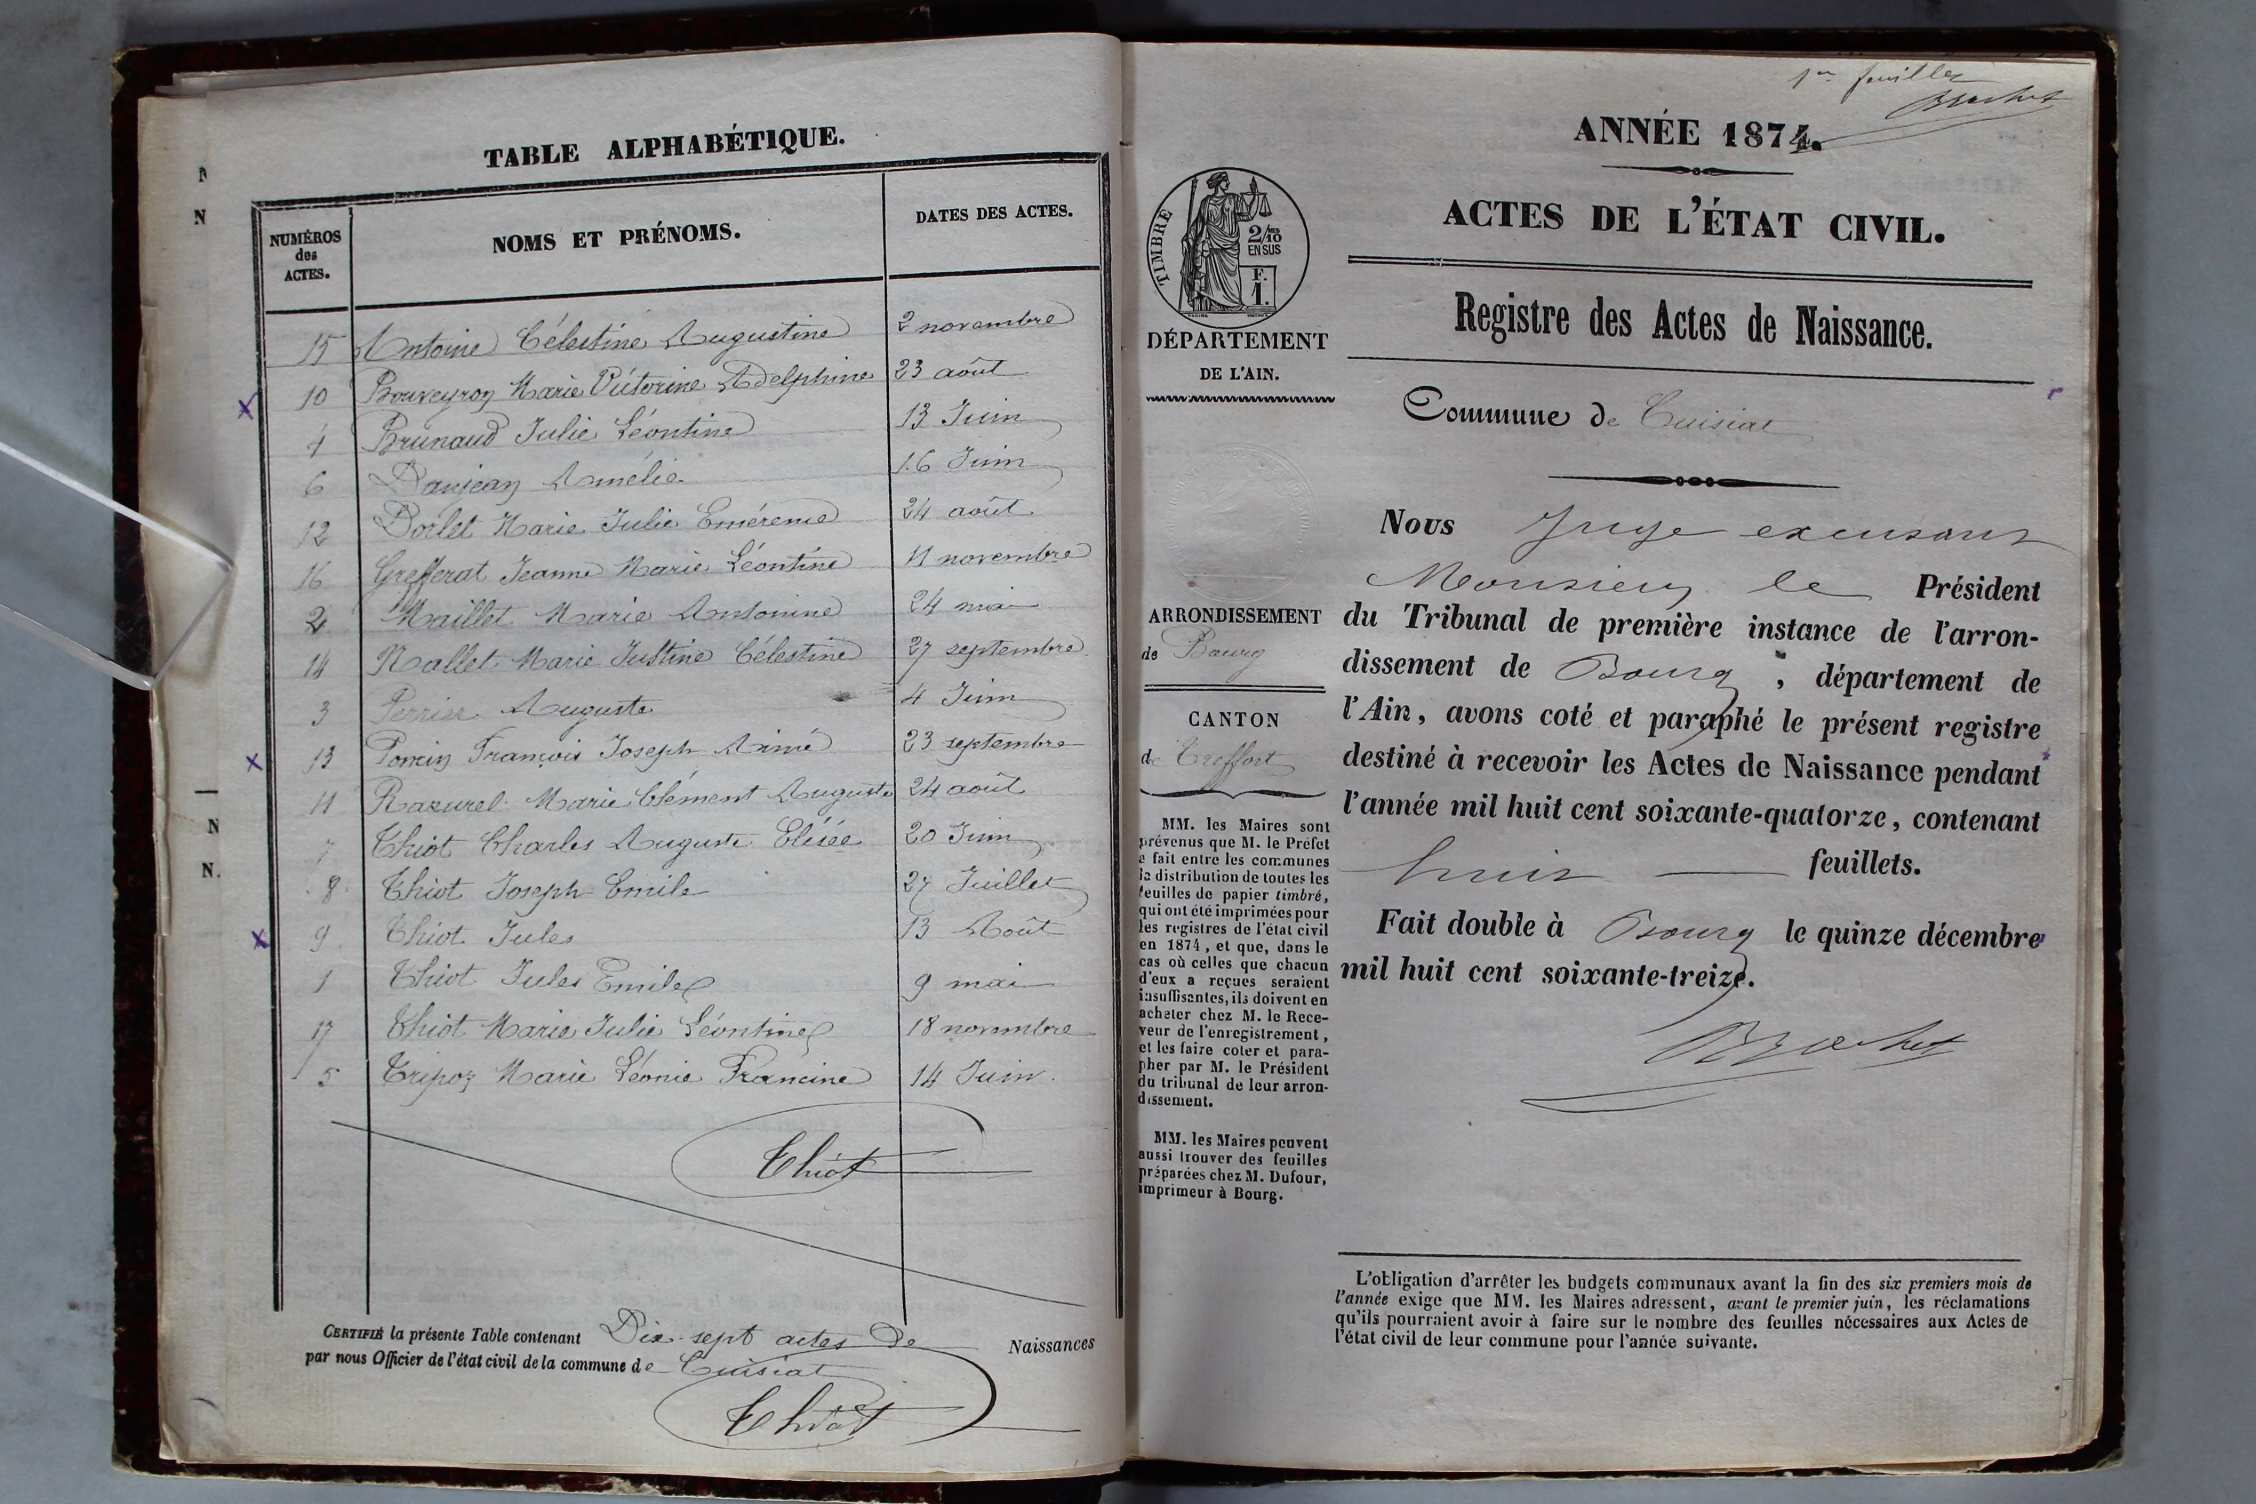 TABLE ALPHABÉTIQUE.
NUMÉROS des ACTES.
NOMS ET PRÉNOMS.
DATES DES ACTES.
15 Antoine Célestine Augustine 2 novembre
10 Bouveyron Marie Victorine Adelphine 23 août
4 Brunaud Julie Léontine 13 Juin
6 Danjean Amélie 16 Juin
12 Dorlet Marie Julie Emérence 24 août
16 Grefferat Jeanne Marie Léontine 11 novembre
2 Maillet Marie Antonine 24 mai
14 Nallet Marie Justine Célestine 27 septembre
3 Perrier Auguste 4 Juin
13 Poncin François Joseph Aimé 23 septembre
11 Razurel Marie Clément Auguste 24 août
7 Thiot Charles Auguste Elisée 20 Juin
8 Thiot Joseph Emile 27 Juillet
9 Thiot Jules 13 Août
1 Thiot Jules Emile 9 mai
17 Thiot Marie Julie Léontine 18 novembre
5 Tripoz Marie Léonie Francine 14 Juin
Thiot
CERTIFIÉ la présente Table contenant Dix-sept actes de Naissances
par nous Officier de l'état civil de la commune de Cuisiat
Thiot
1er feuillet
Brochet
ANNÉE 1874.
ACTES DE L'ÉTAT CIVIL.
Registre des Actes de Naissance.
TIMBRE
2/10 EN SUS
F. 1.
DÉPARTEMENT
DE L'AIN.
Commune de Cuisiat
ARRONDISSEMENT
de Bourg
CANTON
de Treffort
MM. les Maires sont
prévenus que M. le Préfet
a fait entre les communes
la distribution de toutes les
feuilles de papier timbré,
qui ont été imprimées pour
les registres de l'état civil
en 1874, et que, dans le
cas où celles que chacun
d'eux a reçues seraient
insuffisantes, ils doivent en
acheter chez M. le Rece-
veur de l'enregistrement,
et les faire coter et para-
pher par M. le Président
du tribunal de leur arron-
dissement.
MM. les Maires peuvent
aussi trouver des feuilles
préparées chez M. Dufour,
imprimeur à Bourg.
Nous Juge excusant
Monsieur le Président
du Tribunal de première instance de l'arron-
dissement de Bourg, département de
l'Ain, avons coté et paraphé le présent registre
destiné à recevoir les Actes de Naissance pendant
l'année mil huit cent soixante-quatorze, contenant
huit feuillets.
Fait double à Bourg le quinze décembre
mil huit cent soixante-treize.
Brochet
L'obligation d'arrêter les budgets communaux avant la fin des six premiers mois de
l'année exige que MM. les Maires adressent, avant le premier juin, les réclamations
qu'ils pourraient avoir à faire sur le nombre des feuilles nécessaires aux Actes de
l'état civil de leur commune pour l'année suivante.